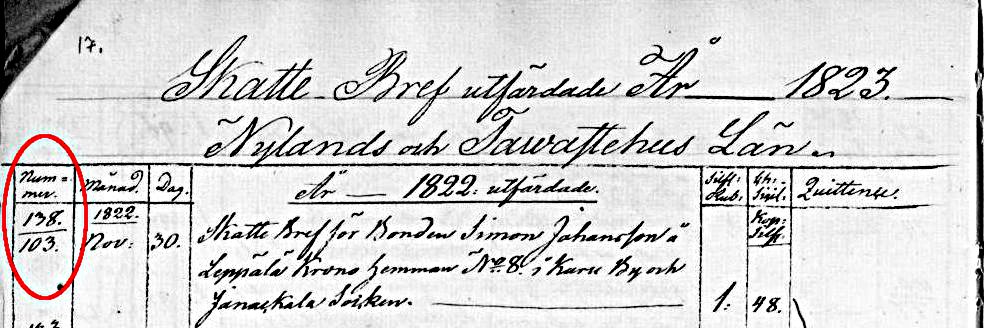 17.
Skatte-Bref utfärdade År 1823.
Nylands och Tawastehus Län.
Num=mer. Månad. Dag. År 1822. utfärdade. Silfv: Rub: Quittence.
138. 1822. Kop: Silfv:
103. Nov: 30. Skatte Bref för Bonden Simon Johansson å
Leppälä Krono hemman No 8. i Karu By och
Janackala Socken. 1. 48.